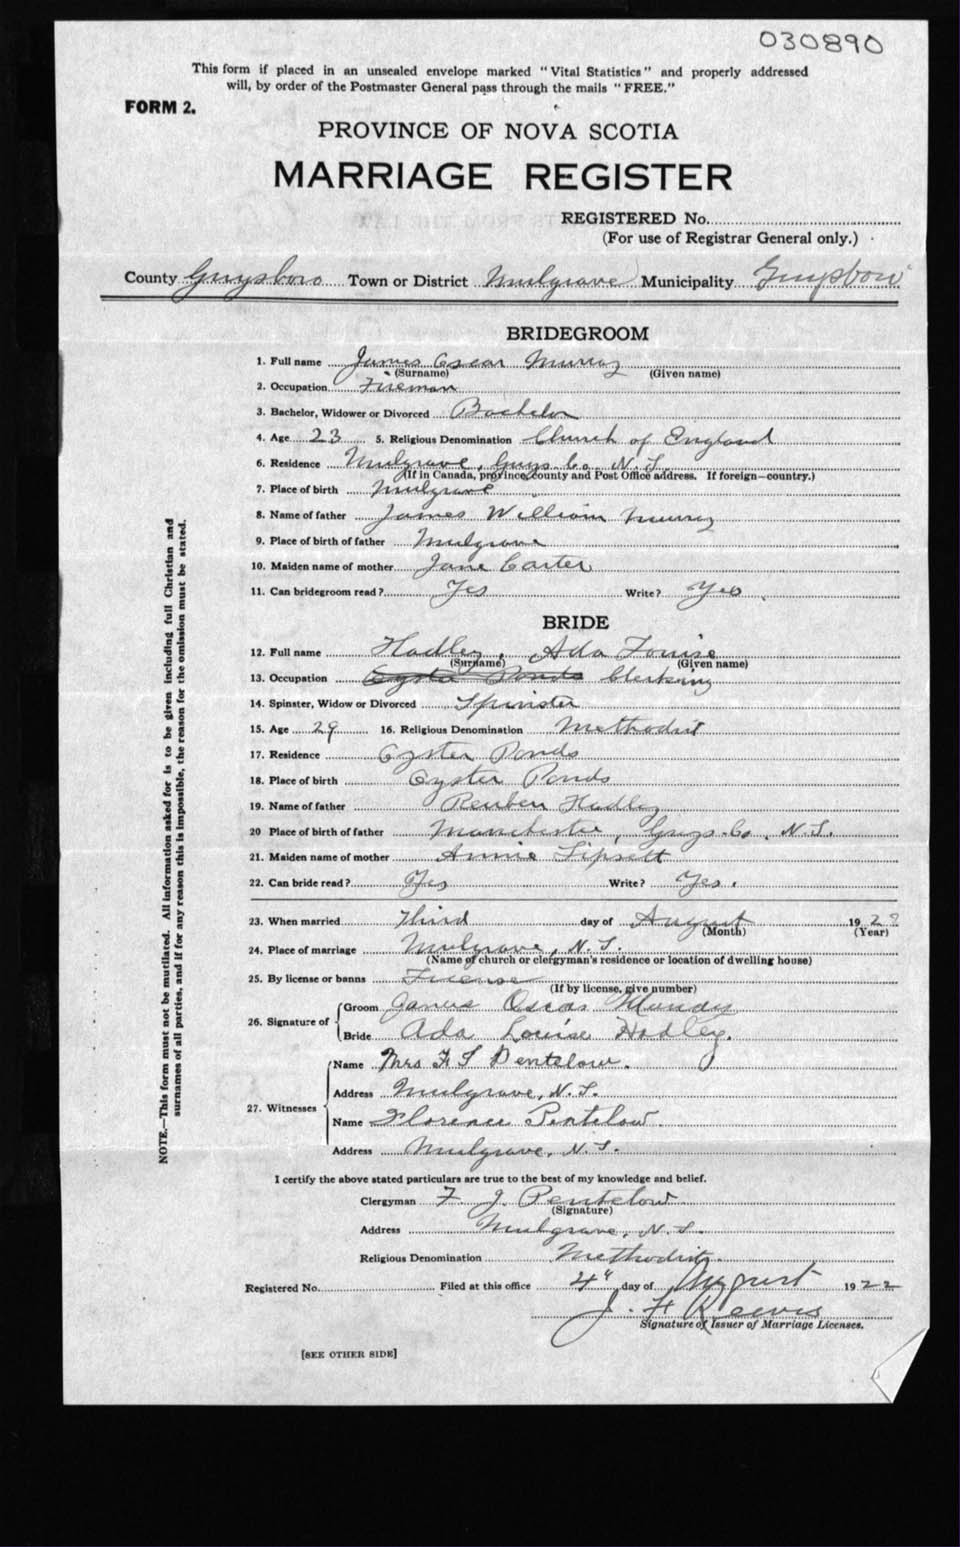 030890
This form if placed in an unsealed envelope marked "Vital Statistics" and properly addressed
will, by order of the Postmaster General pass through the mails "FREE."
FORM 2.
PROVINCE OF NOVA SCOTIA
MARRIAGE REGISTER
REGISTERED No.
(For use of Registrar General only.)
County Guysboro Town or District Mulgrave Municipality Guysboro
BRIDEGROOM
1. Full name James Oscar Murray
(Surname) (Given name)
2. Occupation Fireman
3. Bachelor, Widower or Divorced Bachelor
4. Age 23 5. Religious Denomination Church of England
6. Residence Mulgrave, Guys. Co. N.S.
(If in Canada, province, county and Post Office address. If foreign—country.)
7. Place of birth Mulgrave
8. Name of father James William Murray
9. Place of birth of father Mulgrave
10. Maiden name of mother Jane Carter
11. Can bridegroom read? Yes Write? Yes
BRIDE
12. Full name Hadley, Ada Louise
(Surname) (Given name)
13. Occupation Oyster Ponds Clerking
14. Spinster, Widow or Divorced Spinster
15. Age 29 16. Religious Denomination Methodist
17. Residence Oyster Ponds
18. Place of birth Oyster Ponds
19. Name of father Reuben Hadley
20 Place of birth of father Manchester, Guys. Co. N.S.
21. Maiden name of mother Annie Lipsett
22. Can bride read? Yes Write? Yes.
23. When married Third day of August 1922
(Month) (Year)
24. Place of marriage Mulgrave, N.S.
(Name of church or clergyman's residence or location of dwelling house)
25. By license or banns License
(If by license, give number)
26. Signature of Groom James Oscar
Bride Ada Louise Hadley.
27. Witnesses Name Mrs F J Pentelow.
Address Mulgrave, N.S.
Name Florence Pentelow.
Address Mulgrave, N.S.
I certify the above stated particulars are true to the best of my knowledge and belief.
Clergyman F. J. Pentelow
(Signature)
Address Mulgrave, N.S.
Religious Denomination Methodist.
Registered No. Filed at this office 4" day of August 1922
J. F. Reeves
Signature of Issuer of Marriage Licenses.
[SEE OTHER SIDE]
NOTE.—This form must not be mutilated. All information asked for is to be given including full Christian and
surnames of all parties, and if for any reason this is impossible, the reason for the omission must be stated.